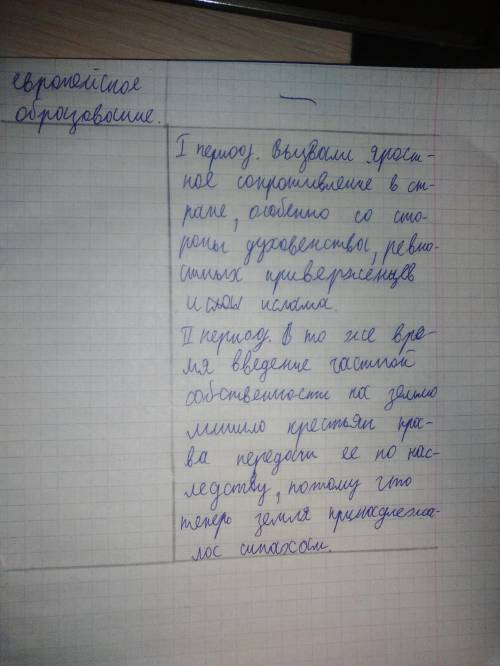 европейское
образование.
—
I период. Вызвали ярост-
ное сопротивление в ст-
ране, особенно со сто-
роны духовенства, ревно-
стных приверженцев
ислама.
II период. В то же вре-
мя введение частной
собственности на землю
лишило крестьян пра-
ва передачи ее по нас-
ледству, потому что
теперь земля принадлежа-
лос сипахам.